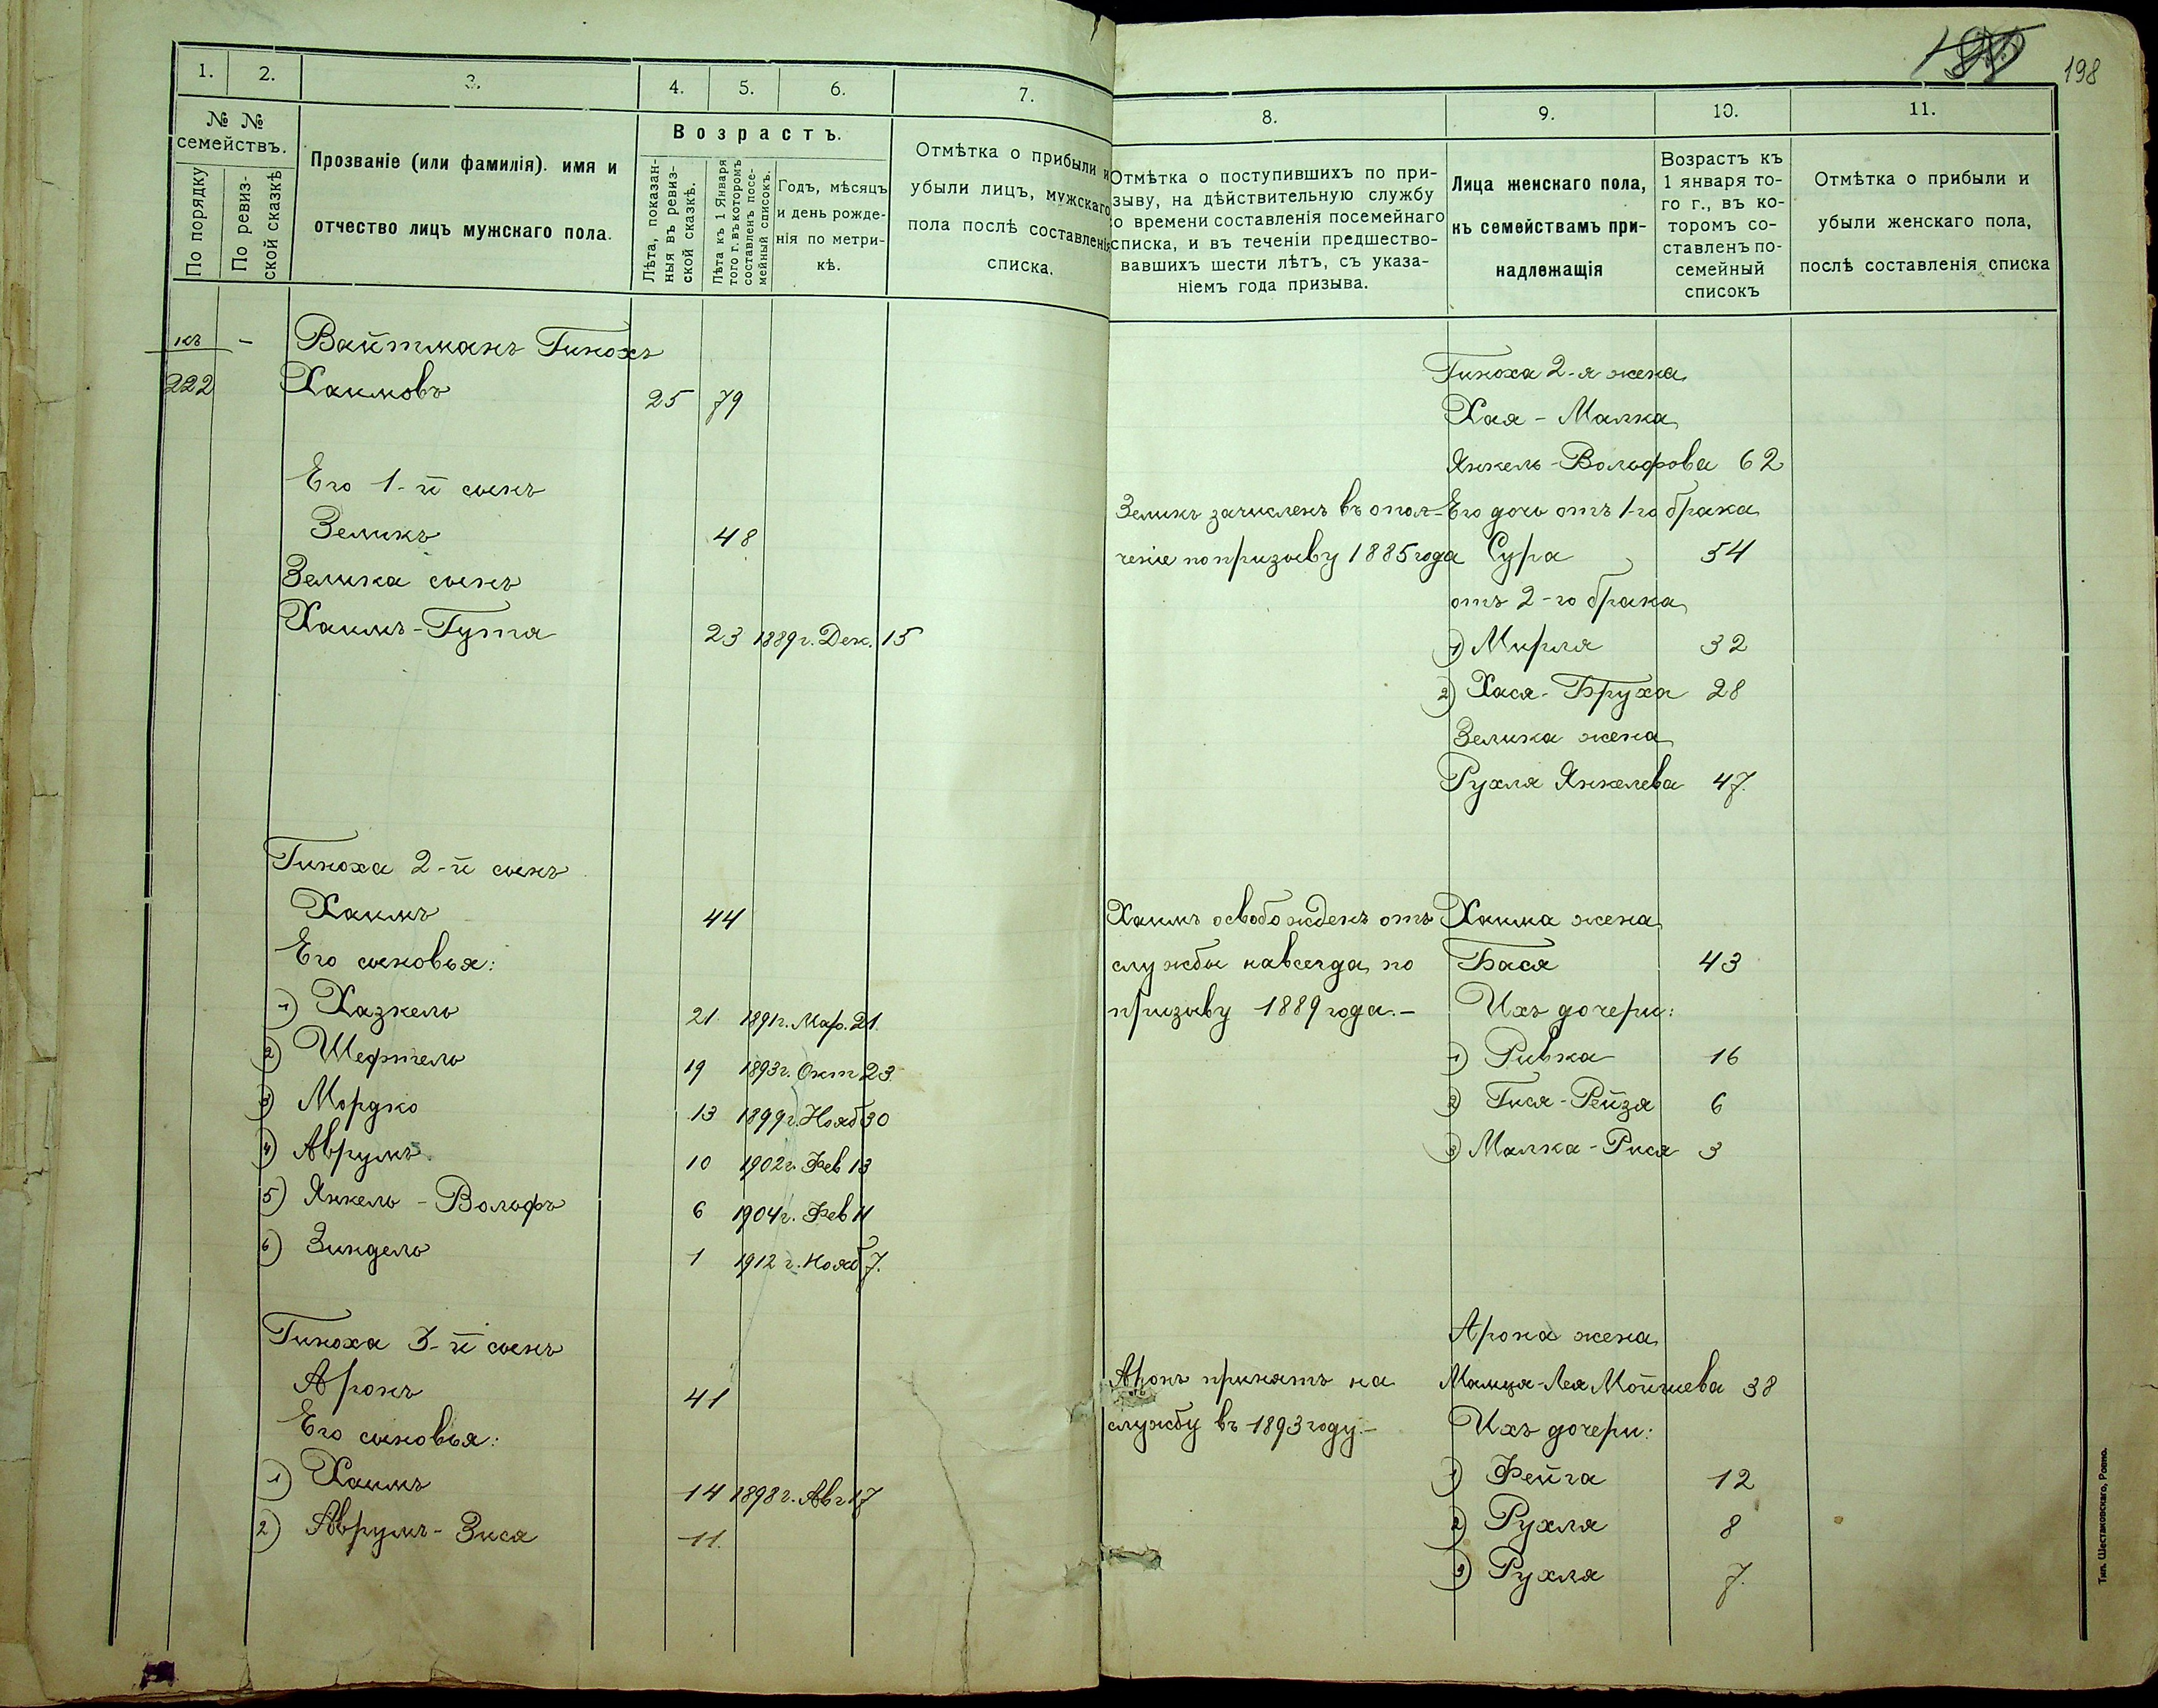 198
1. 2. 3. 4. 5. 6. 7.
№ №
семействъ.
По порядку
По ревиз-
ской сказкѣ
Прозваніе (или фамилія). имя и
отчество лицъ мужскаго пола.
Возрастъ.
Лѣта, показан-
ныя въ ревиз-
ской сказкѣ.
Лѣта къ 1 Января
того г. въ которомъ
составленъ посе-
мейный списокъ.
Годъ, мѣсяцъ
и день рожде-
нія по метри-
кѣ.
Отмѣтка о прибыли и
убыли лицъ, мужскаго
пола послѣ составленія
списка.
къ - Вайтманъ Гинохъ
222 Хаимовъ 25 79
Его 1-й сынъ
Зеликъ 48
Зелика сынъ
Хаимъ-Гутя 23 1889 г. Дек. 15
Гиноха 2-й сынъ
Хаимъ 44
Его сыновья:
1) Хазкель 21 1891 г. Мар. 21.
2) Шефтель 19 1893 г. Окт 23.
3) Мордко 13 1899 г. Нояб 30
4) Аврумъ 10 1902 г. Фев 13
5) Янкель - Вольфъ 6 1904 г. Фев 11
6) Зиндель 1 1912 г. Нояб 7.
Гиноха 3-й сынъ
Аронъ 41
Его сыновья:
1) Хаимъ 14 1898 г. Авг 17
2) Аврумъ-Зися 11.
8. 9. 10. 11.
Отмѣтка о поступившихъ по при-
зыву, на дѣйствительную службу
со времени составленія посемейнаго
списка, и въ теченіи предшество-
вавшихъ шести лѣтъ, съ указа-
ніемъ года призыва.
Лица женскаго пола,
къ семействамъ при-
надлежащія
Возрастъ къ
1 января то-
го г., въ ко-
торомъ со-
ставленъ по-
семейный
списокъ
Отмѣтка о прибыли и
убыли женскаго пола,
послѣ составленія списка
Гиноха 2-я жена
Хая - Малка
Янкель-Вольфова 62
Зеликъ зачисленъ въ опол- Его дочь отъ 1-го брака
ченіе по призыву 1885 года Сура 54
отъ 2-го брака
1) Мирля 32
2) Хася-Бруха 28
Зелика жена
Рухля Янкелева 47.
Хаимъ освобожденъ отъ Хаима жена
службы навсегда по Бася 43
призыву 1889 года.- Ихъ дочери:
1) Ривка 16
2) Гися-Рейзя 6
3) Малка-Рися 3
Арона жена
Аронъ принятъ на Мамця-Лея Мойшева 38
службу въ 1893 году.- Ихъ дочери:
1) Фейга 12
2) Рухля 8
3) Рухля 7.
Тип. Шестаковскаго, Ровно.